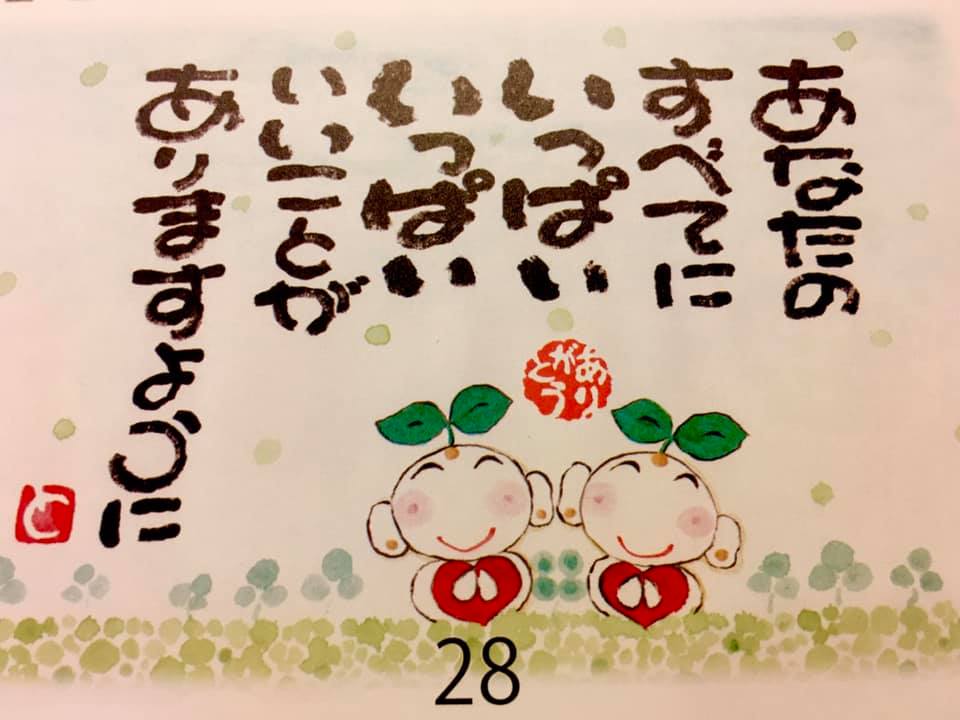 あなたの
すべてに
いっぱい
いっぱい
いいことが
ありますように
ありがとう
28